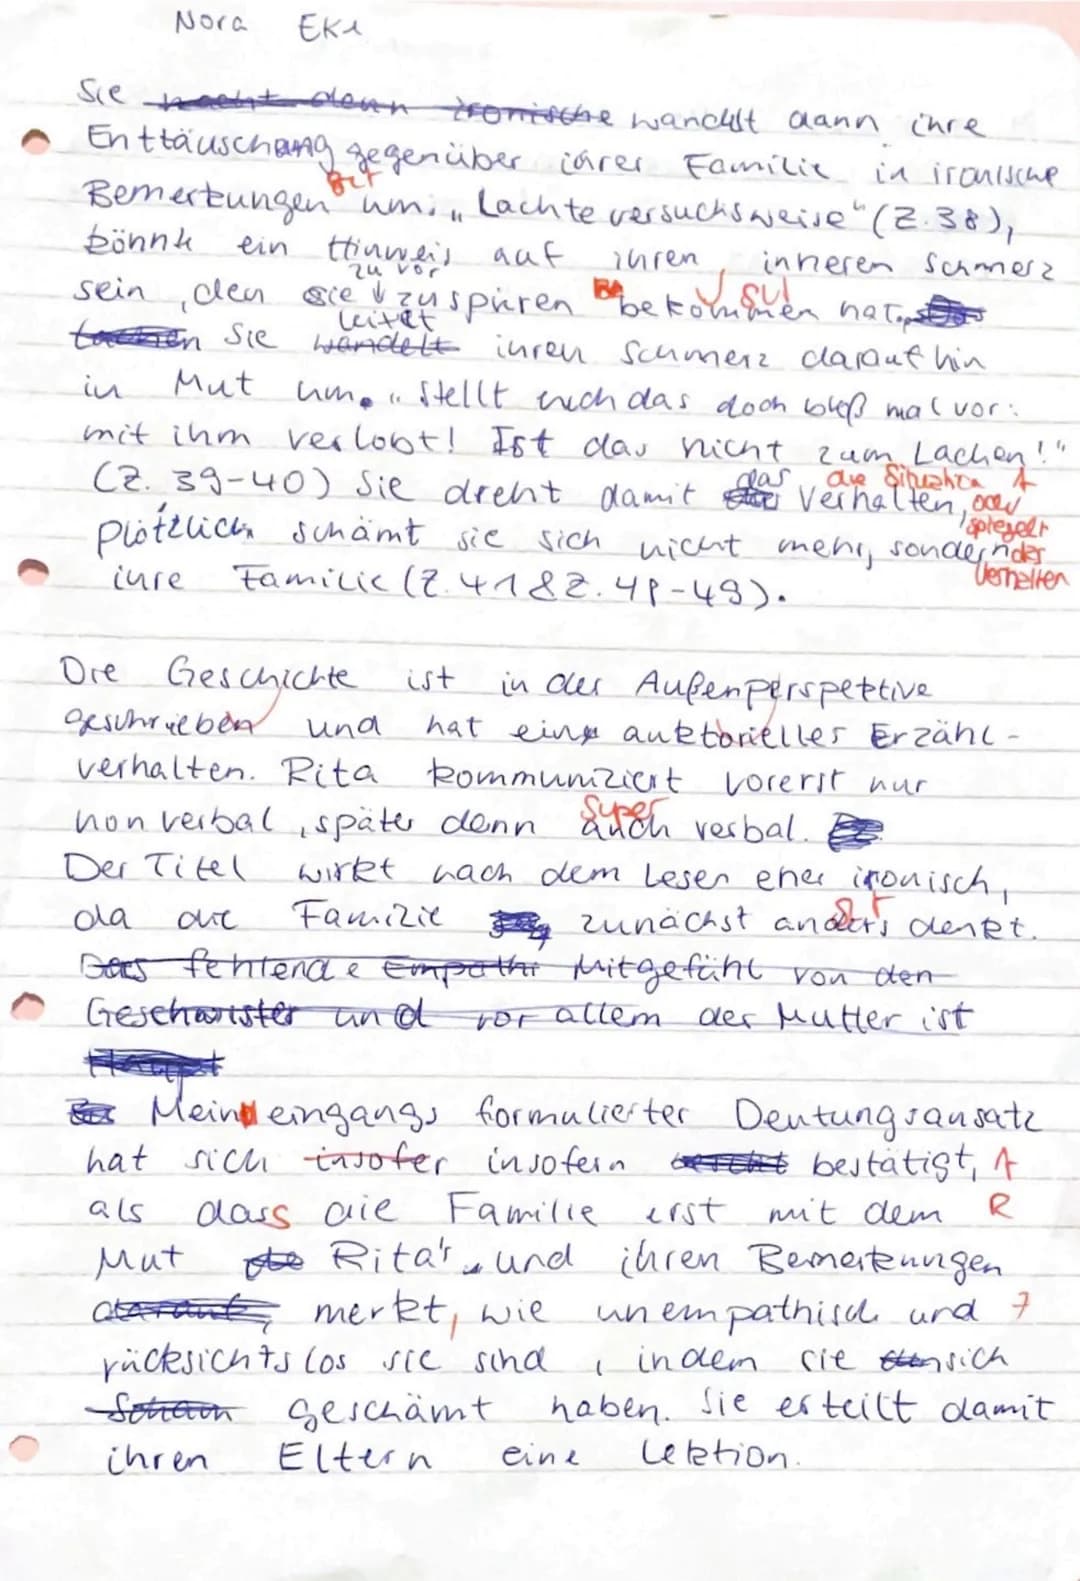 Nora
Sie ~~macht dann ironische~~ wandelt dann ihre
Enttäuschung gegenüber ihrer Familie in ironische
Bemerkungen um. „Lachte versuchsweise" (Z.38),
könnte ein Hinweis auf ihren inneren Schmerz
zu vor
sein, den sie zu spüren bekommen hat.
leitet
Sie ~~wandelt~~ ihren Schmerz darauf hin
in Mut um. „Stellt euch das doch bloß mal vor:
mit ihm verlobt! Ist das nicht zum Lachen!"
das die Situation A
(Z. 39-40) Sie dreht damit Verhalten, oder
spiegelt
Plötzlich schämt sie sich nicht mehr, sondern das
Verhalten
ihre Familie (Z.41&Z.48-49).
Die Geschichte ist in der Außenperspektive
geschrieben und hat ein auktorielles Erzähl-
verhalten. Rita kommuniziert vorerst nur
Super
non verbal, später dann auch verbal.
Der Titel wirkt nach dem Lesen eher ironisch,
da die Familie zunächst anders denkt.
~~Das fehlende Empathi Mitgefühl von den~~
~~Geschwister und vor allem der Mutter ist~~
Mein eingangs formulierter Deutungsansatz
hat sich ~~insofer~~ insofern bestätigt, A
als dass die Familie erst mit dem R
Mut Rita's und ihren Bemerkungen
~~darauf,~~ merkt, wie unempathisch und 7
rücksichtslos sie sind, indem sie sich
~~Scham~~ geschämt haben. Sie erteilt damit
ihren Eltern eine Lektion.